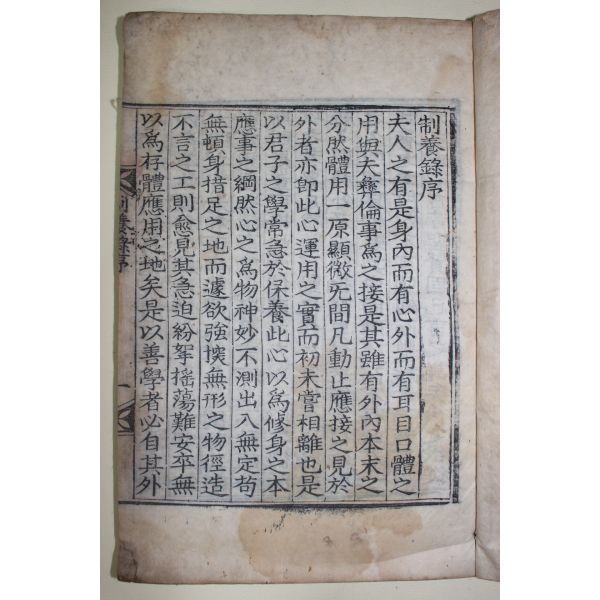 制養錄序
夫人之有是身內而有心外而有耳目口體之
用與夫彝倫事爲之接是其雖有外內本末之
分然體用一原顯微旡間凡動止應接之見於
外者亦卽此心運用之實而初未嘗相離也是
以君子之學常急於保養此心以爲修身之本
應事之綱然心之爲物神妙不測出入無定苟
無頓身措足之地而遽欲強揍無形之物徑造
不言之工則愈見其急迫紛挐搖蕩難安卒無
以爲存體應用之地矣是以善學者必自其外
制養錄序
一